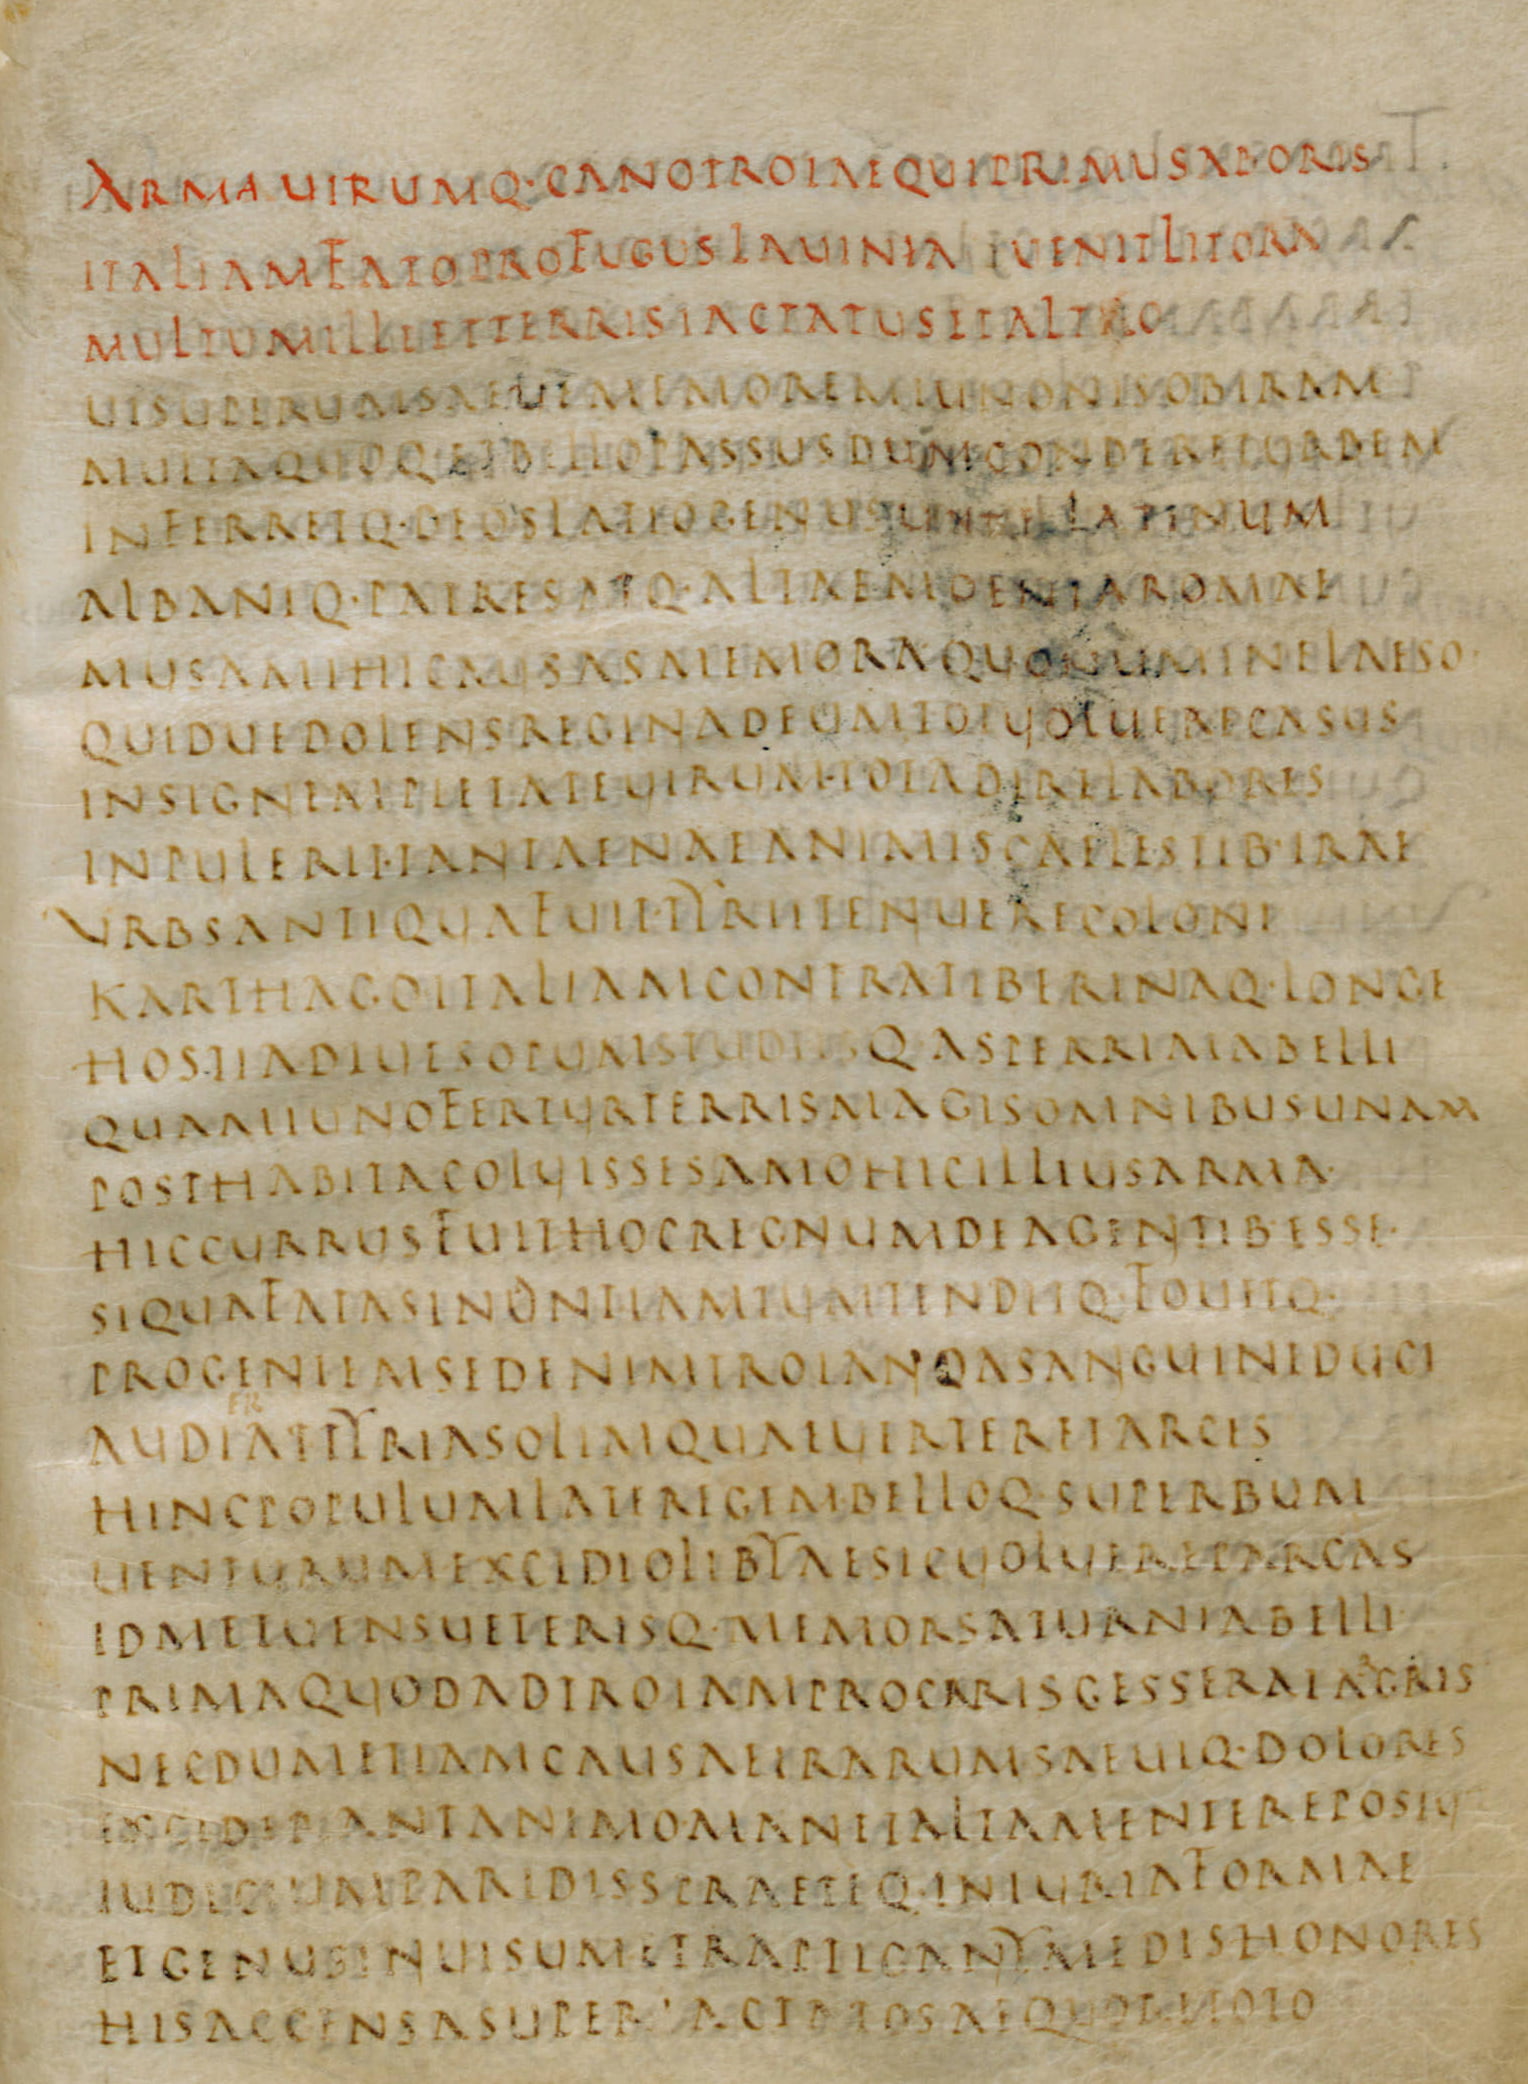 ARMAUIRUMQ·CANOTROIAEQUIPRIMUSABORIS
ITALIAMFATOPROFUGUSLAUINIAQUENITLITORA
MULTUMILLEETTERRISIACTATUSETALTO
UISUPERUMSAEUAEMEMOREMIUNONISOBIRAM
MULTAQUOQETBELLOPASSUSDUMCONDERETURBEM
INFERRETQ·DEOSLATIOGENUSUNDELATINUM
ALBANIQ·PATRESATQ·ALTAEMOENIAROMAE
MUSAMIHICAUSASMEMORAQUONUMINELAESO·
QUIDUEDOLENSREGINADEUMTOTUOLUERECASUS
INSIGNEMPIETATEUIRUM·TOTADIRELABORES
INPULERIT·TANTAENAEANIMISCAELESTIB·IRAE
URBSANTIQUAFUIT·TYRIITENUERECOLONI
KARTHAGOITALIAMCONTRATIBERINAQ·LONGE
HOSTIADIUESOPUMSTUDIISQASPERRIMABELLI
QUAMIUNOFERTURTERRISMAGISOMNIBUSUNAM
POSTHABITACOLUISSESAMOHICILLIUSARMA·
HICCURRUSFUITHOCREGNUMDEAGENTIB·ESSE·
SIQUAFATASINONTIAMTUMTENDITQ·FOUITQ·
PROGENIEMSEDENIMTROIANOASANGUINEDUCI
AUDIATTYRIASOLIMQUAEUERTERETARCES
HINCPOPULUMLATEREGEMBELLOQ·SUPERBUM
UENTURUMEXCIDIOLIBYAESICUOLUEREPARCAS
IDMETUENSUETERISQ·MEMORSATURNIABELLI
PRIMAQUODADTROIAMPROCARISGESSERATAGRIS
NECDUMETIAMCAUSAEIRARUMSAEUIQ·DOLORES
EXCIDERANTANIMOMANETALTAMENTEREPOSTU
IUDICIUMPARIDISSPRAETEQ·INIURIAFORMAE
ETGENUSINUISUMETRAPTIGANYMEDISHONORES
HISACCENSASUPERIACTATOSAEQUORETOTO